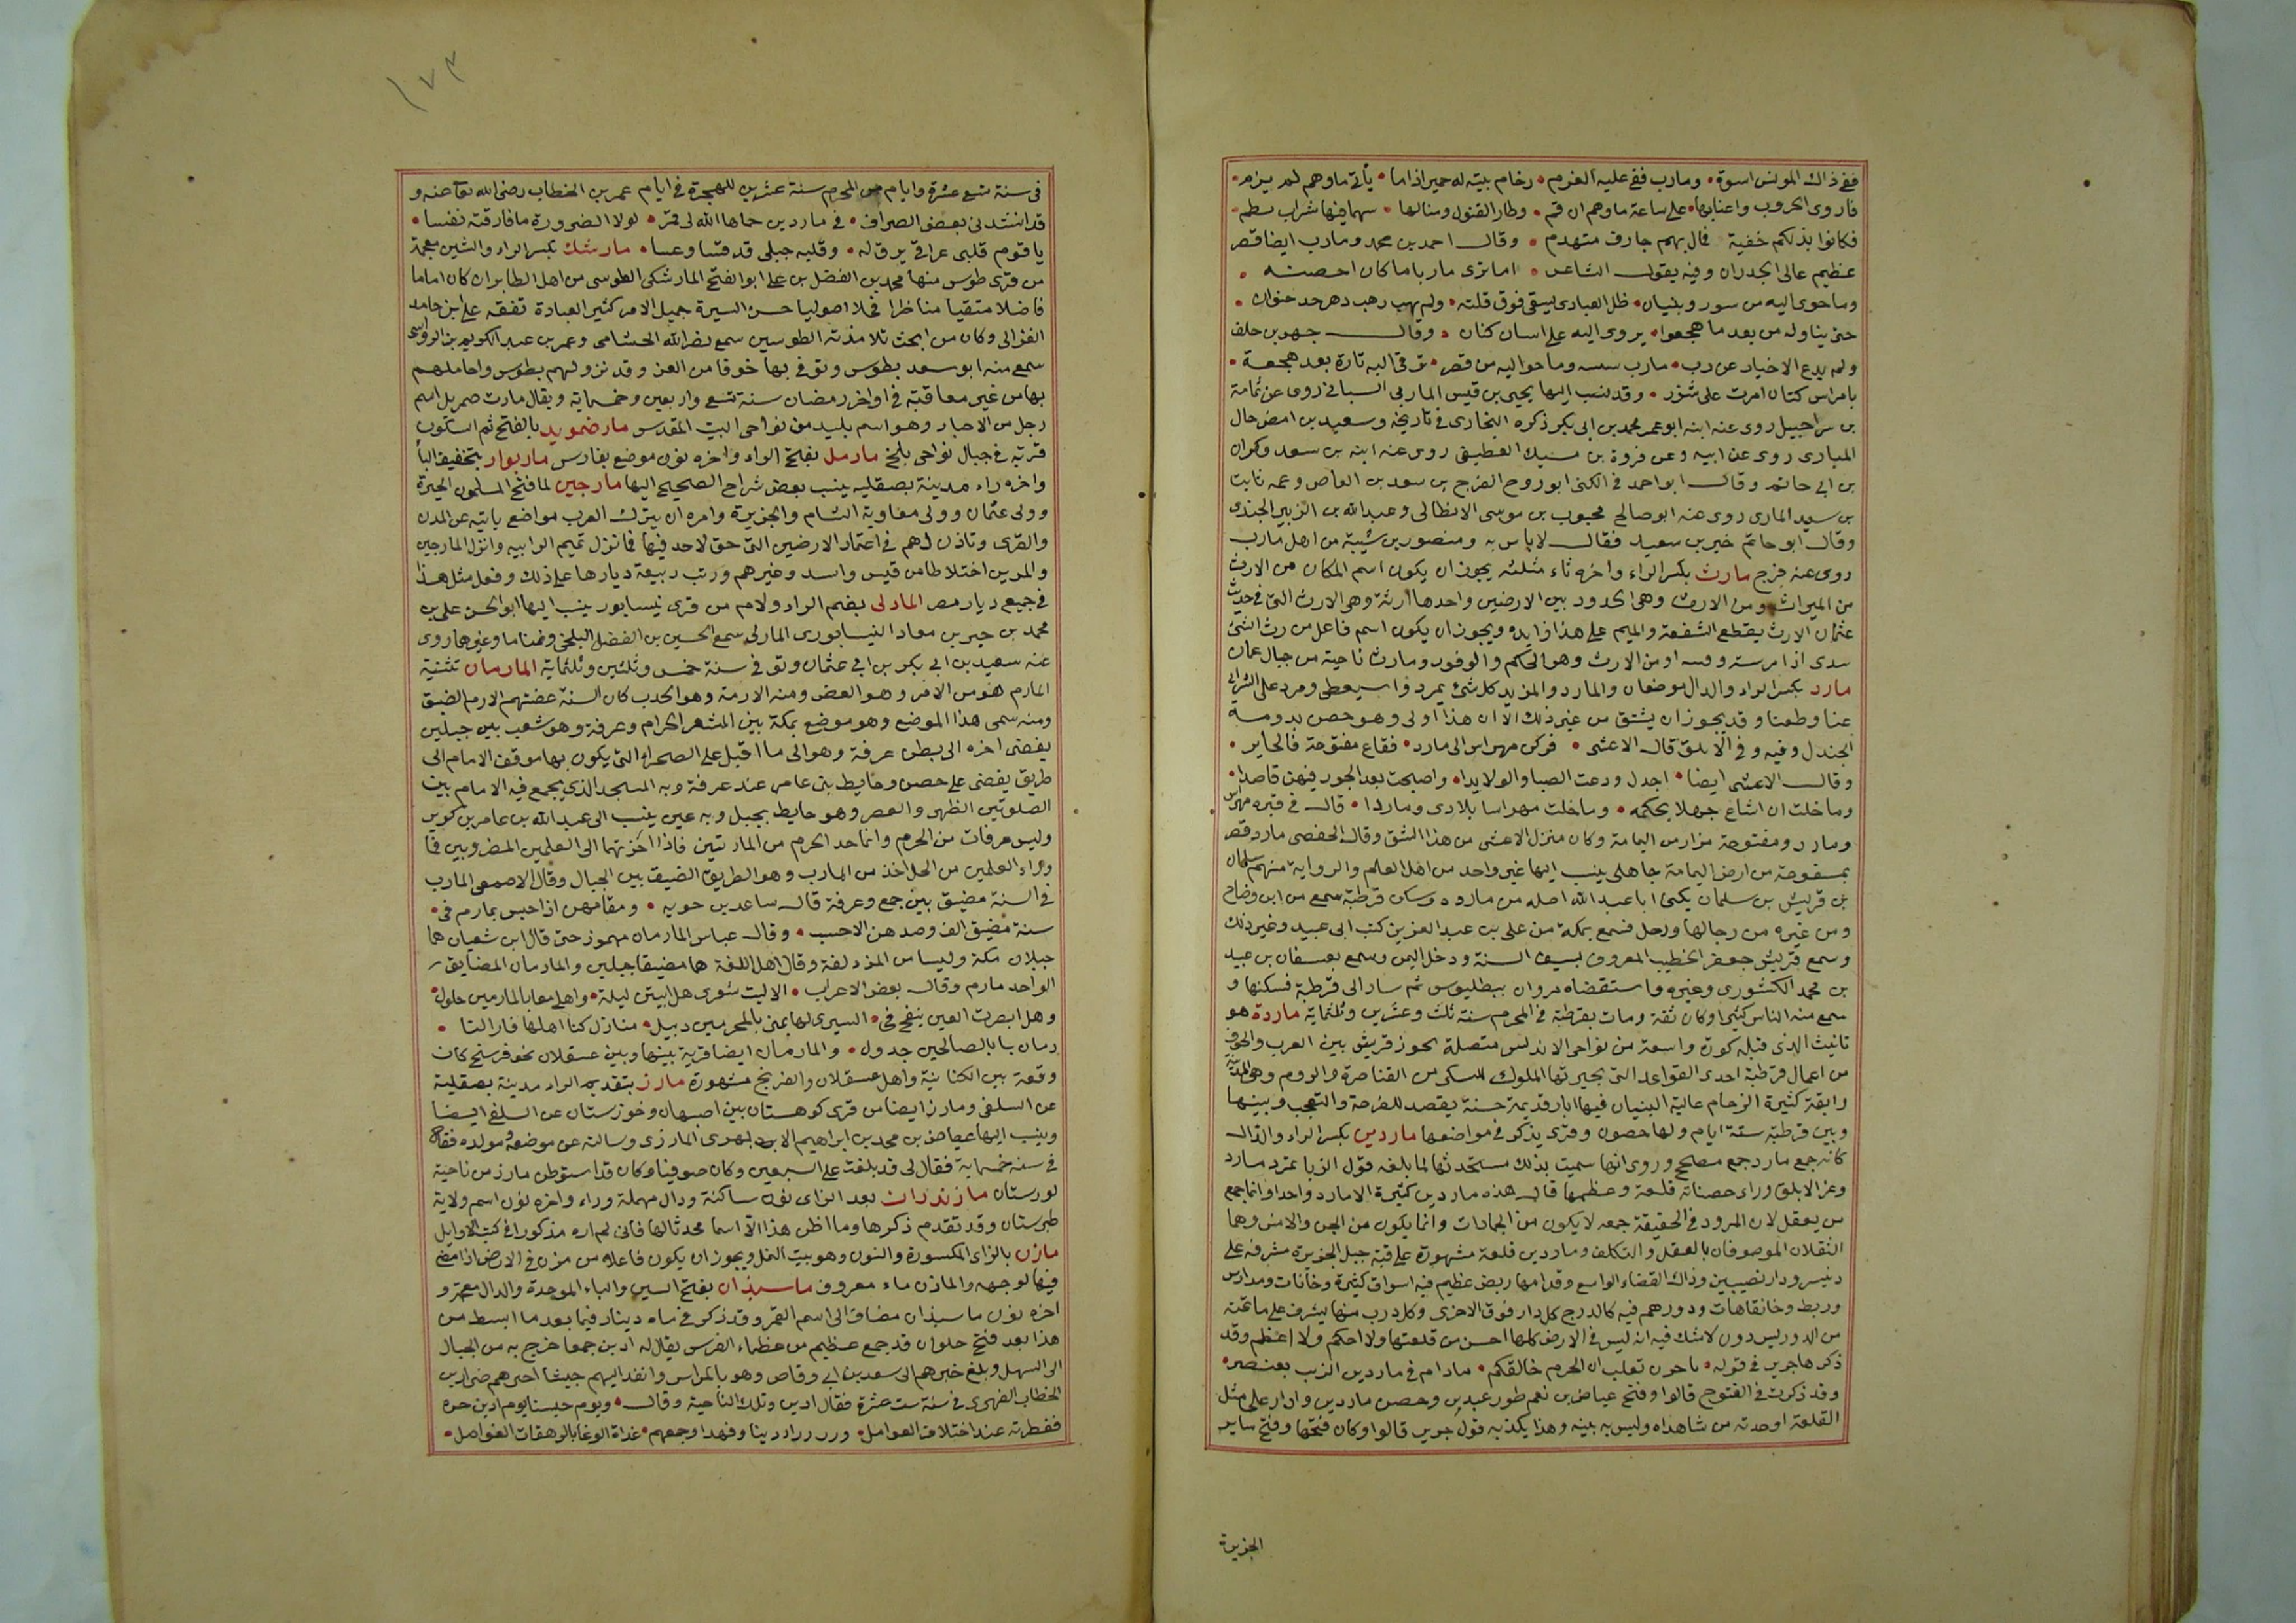 ففى ذاك المونس اسوة • ومارب قفى عليه العرم • رخام بنته له حمير اذا ما • يأتى ماوهم لم يرم •
فاروى الحروب واعنابها • على ساعة ماوهم ان قسم • وطار القنول ومنالها • بهما فيها شراب يطم •
فكانوا بذلكم خفية فمال بهم جارف متهدم • وقال احمد بن محمد ومارب ايضا قصر
عظيم عالى الجدران وفيه يقول الشاعر • اما ترى ماربا ما كان احصنه •
وما حوى ليه من سور وبنيان • ظل العبادى يسقى فوق قلته • ولم يهب رهب دهر حد خوان •
حتى يناوله من بعد ما هجعوا • يروى اليه على اسان كتان • وقال جهم بن خلف
ولم يدع الاخبار عن رب • مارب وما حواليه من قصر • ترقى اليه تارة بعد هجعة •
بامراس كتان امرت على شزر • وقد نسب اليها يحيى بن قيس الماربى السبائى روى عن ثمامة
بن شراحيل روى عنه ابنه ابو عمر محمد بن ابى بكر ذكره البخارى فى تاريخه وسعيد بن ابيض حال
المباری روى عن ابيه وعن فروة بن مسيك العطيفى روى عنه ابنه بن سعد
بن ابى حاتم وقال ابو احمد فى الكنى ابو روح الفرج بن سعد بن العاص وعمه ثابت
بن سعيد المارى روى عنه ابو صالح محبوب بن موسى الانطاكى وعبد الله بن الزبير الجندى
وقال ابو حاتم خير بن سعيد فقال لا باس به ومنصور بن شيبة من اهل مارب
روى عنه فرج مارث بكسر الراء واخره ثاء مثلثه يجوز ان يكون اسم المكان من الارث
من الميراث ومن الارث وهى الحدود بين الارضين واحدها أرثة وهى الارث التى فى حديث
عثمان الارث يقطع الشفعة والميم على هذا زايده ويجوز ان يكون اسم فاعل من رث الشئ
سدى اذا مرسته ومسه او من الارث وهو الحكم والوقور ومارث ناحية من جبال عمان
مارد بكسر الراء والدال موضعان والمارد والمزيد كل شئ يمرد واسيعطى ومرد على الشراى
عنا وطعنا وقد يجوز ان يشتق من غير ذلك الا ان هذا اولى وهو حصن بدومة
الجندل وفيه وفى الابلق قال الاعشى • فركن مهراس الى مارد • فقاع منفوحة فالحاير •
وقال الاعشى ايضا • اجدل ودعت الصبا والولايدا • واصبحت بعد الجور فيهن قاصدا •
وما خلت ان اشاغ جهلا بحكمه • وما خلت مهراسا بلادى وماردا • قال فى قبره مهراس
ومارد ومفتوحة مزار من اليمامة وكان منزل الاعشى من هذا الشق وقال الحفصى مارد قصر
بمنفوحة من ارض اليمامة جاهلى ينسب اليها غير واحد من اهل العلم والرواية منهم سلمان
بن قريش بن سلمان يكنى ابا عبد الله اصله من مارده وسكن قرطبة سمع من ابن وضاح
ومن غيره من رجالها ورحل فسمع بمكة من على بن عبد العزيز كتب ابى عبيد وغير ذلك
وسمع قريش جعفر الخطيب المعروف بسيف السنة ودخل اليمن وسمع بصنعان بن عبيد
بن محمد الكشورى وغيره واستقضاه مروان ببطليوس ثم سار الى قرطبة فسكنها و
سمع منه الناس كثيرا وكان ثقة ومات بقرطبة فى المحرم سنة ثلث وعشرين وثلثماية ماردة هو
تانيث الذى قبله كورة واسعة من نواحى الاندلس متصلة بحوز قريش بين الغرب والجوف
من اعمال قرطبة احدى القواعد التى تخيرتها الملوك للسكى من القناصرة والروم وهى المدينة
رايقة كثيرة الرخام عالية البنيان فيها اثار قديمة حسنة يقصد للفرجة والتعجب وبينها
وبين قرطبة ستة ايام ولها حصون وقرى يذكر فى مواضعها ماردين بكسر الراء والدال
كانه جمع مارد جمع مصلح وروى انها سميت بذلك مستحدثها لما بلغه قول الزبا تمرد مارد
وعز الابلق وراء حصنانة قلعة وعظمها قال هذه ماردين كثيرة الا مارد واحد وانما جمع
من يعقل لان المرود فى الحقيقة جمعه لا يكون من الجمادات وانما يكون من الجن والانس وهما
الثقلان الموصوفان بالعقل والتكلف وماردين قلعة مشهورة على قبة جبل الجزيرة مشرفه على
دنيسر ودار نصيبين وذاك الفضاء الواسع وقدامها ربض عظيم فيه اسواق كثيرة وخانات ومدارس
وربط وخانقاهات ودورهم فيه كالدرج كل دار فوق الاخرى وكل درب منها يشرف على ما تحته
من الدور ليس دون لا شك فيه انه ليس فى الارض كلها احسن من قلعتها ولا احكم ولا اعظم وقد
ذكرها جرير فى قوله • ياحزر تغلب ان الحرم خالقكم • مادام فى ماردين الزيت يعتصر •
وقد ذكرت فى الفتوح قالوا وفتح عياض بن نعم طور عبدين وحصن ماردين ودار على مثل
القلعة اوحدته من شاهداه وليس به بينه وهذا يكذبه قول جرير قالوا وكان فتحها وفتح ساير
الجزيرة
١٧٣
فى سنة تسع عشرة وايام من المحرم سنة عشرين للهجرة فى ايام عمر بن الخطاب رضى الله تعا عنه و
قد انشدنى بعض الصراف • فى ماردين حماها الله لى قمر • لولا الضرورة ما فارقته نفسا •
يا قوم قلبى عراقى يرق له • وقلبه جبلى قد قسا وعسا • مارشك بكسر الراء والشين معجمة
من قرى طوس منها محمد بن الفضل بن على ابو الفتح المارشكى الطوسى من اهل الطابران كان اماما
فاضلا متقيا مناظرا فحلا اصوليا حسن السيرة جميل الامر كثير العبادة تفقه على بن حامد
الغزالى وكان من انجب تلامذته الطوسيين سمع نصر الله الخشنامى وعمر بن عبد الكريم بن الرواسى
سمع منه ابو سعد بطوس وتوفى بها خوفا من الغز وقد نزولهم بطوس واحاطهم
بها من غير معاقبة فى اواخر رمضان سنة تسع واربعين وخمسماية ويقال مارت صمريل اسم
رجل من الاحبار وهو اسم بليد من نواحى البيت المقدس مارضمويد بالفتح ثم السكون
قرية فى جبال نواحى بلخ مارمل بفتح الراء واخره نون موضع بفارس ماربوار بتخفيف الباء
واخره راء مدينة بصقليه ينسب بعض شراح الصحيح اليها مارجين لما فتح المسلمون الحيرة
وولى عثمان وولى معاوية الشام والجزيرة وامره ان ينزل العرب مواضع يايته عن المدن
والقرى وتاذن لهم فى اعتماد الارضين التى حق لاحد فيها فانزل تميم الرابيه وانزل المارجين
والمديبر اختلاطا من قيس واسد وغيرهم ورتب ربيعة ديارها على ذلك وفعل مثل هذا
فى جميع ديار مصر المارلى بضم الراء ولام من قرى نيسابور ينسب اليها ابو الحسن على بن
محمد بن جبر بن معاد النيسابورى المارلى سمع الحسين بن الفضل البلخى وتمتاما وغيرهما روى
عنه سعيد بن ابى بكر بن ابى عثمان وتوفى فى سنة خمس وثلثين وثلثماية المازمان تثنية
المازم هو من الازم وهو العض ومنه الازمة وهو الجدب كان السنة عضتهم الازم الضيق
ومنه سمى هذا الموضع وهو موضع بمكة بين المشعر الحرام وعرفة وهو شعب بين جبلين
يفضى اخره الى بطن عرفة وهو الى ما اقبل على الصخرات التى يكون بها موقف الامام الى
طريق يفضى على حصن وحايط بنى عامر عند عرفة وبه المسجد الذى يجمع فيه الامام بين
الصلوتين الظهر والعصر وهو حايط بجبل وبه عين ينسب الى عبد الله بن عامر بن كريز
وليس عرفات من الحرم وانما حد الحرم من المازمين فاذا جزتهما الى العلمين المضروبين فما
وراء العلمين من الحل اخذ من المازم وهو الطريق الضيق بين الجبال وقال الاصمعى المازم
فى السنة مضيق بين جمع وعرفة قال ساعد بن جويه • ومقامهن اذا حبسن بمازم فى •
سنة مضيق الف وصدهن الاحسب • وقال عباس المازمان مهموز حتى قال ابن شعبان هما
جبلان مكة وليسا من المزدلفة وقال اهل اللغة هما مضيقا جبلين والمازمان المضايق
الواحد مازم وقال بعض الاعراب • الا ليت شعرى هل ابيتن ليلة • واهلى معا بالمازمين حلول •
وهل ابصرت العين ينفح فى • السيرى لها يمنى بالمحرمين دبيل • منازل كنا اهلها فازالتا •
زمان بنا بالصالحين جدول • والمازمان ايضا قرية بينها وبين عسقلان نحو فرسخ كانت
وقعة بين الكنانية واهل عسقلان والفرنج مشهورة مازر بتقديم الراء مدينة بصقلية
عن السلفى ومازر ايضا من قرى كوهستان بين اصبهان وخوزستان عن السلفى ايضا
وينسب اليها عياض بن محمد بن ابراهيم الابهرى المازرى وسالته عن موضعه ومولده فقال
فى سنة خمسماية فقال لى قد بلغت على السبعين وكان صوفيا وكان قد استوطن مازر من ناحية
لورستان مازندران بعد الزاى نون ساكنة ودال مهملة وراء واخره نون اسم ولاية
طبرستان وقد تقدم ذكرها وما اظن هذا الا اسما محدثا لها فانى لم اره مذكورا فى كتب الاوايل
مازن بالزاى المكسورة والنون وهو بيت النمل ويجوز ان يكون فاعلا من مزن فى الارض اذا مضى
فيها لوجهه والمازن ماء معروف ماسبذان بفتح السين والباء الموحدة والدال معجمة و
اخره نون ماسبذان مضاف الى اسم القمر وقد ذكر فى ماه دينار فيما بعد ما ابسط من
هذا بعد فتح حلوان قد جمع عظيم من عظماء الفرس يقال له ادين جمعا خرج به من الجبال
الى السهل وبلغ خبرهم الى سعد بن ابى وقاص وهو بالمداس وانفد اليهم جيشا احرهم ضرار بن
الخطاب الفهرى فى سنة ست عشرة فقال ادين وتلك الناحية وقال • ويوم حبسنا يوم ادين حره
ففطرته عند اختلاف العوامل • وررد راد دينا وفهدا وجمعهم • غداة الوغا بالرهفات الفواصل •